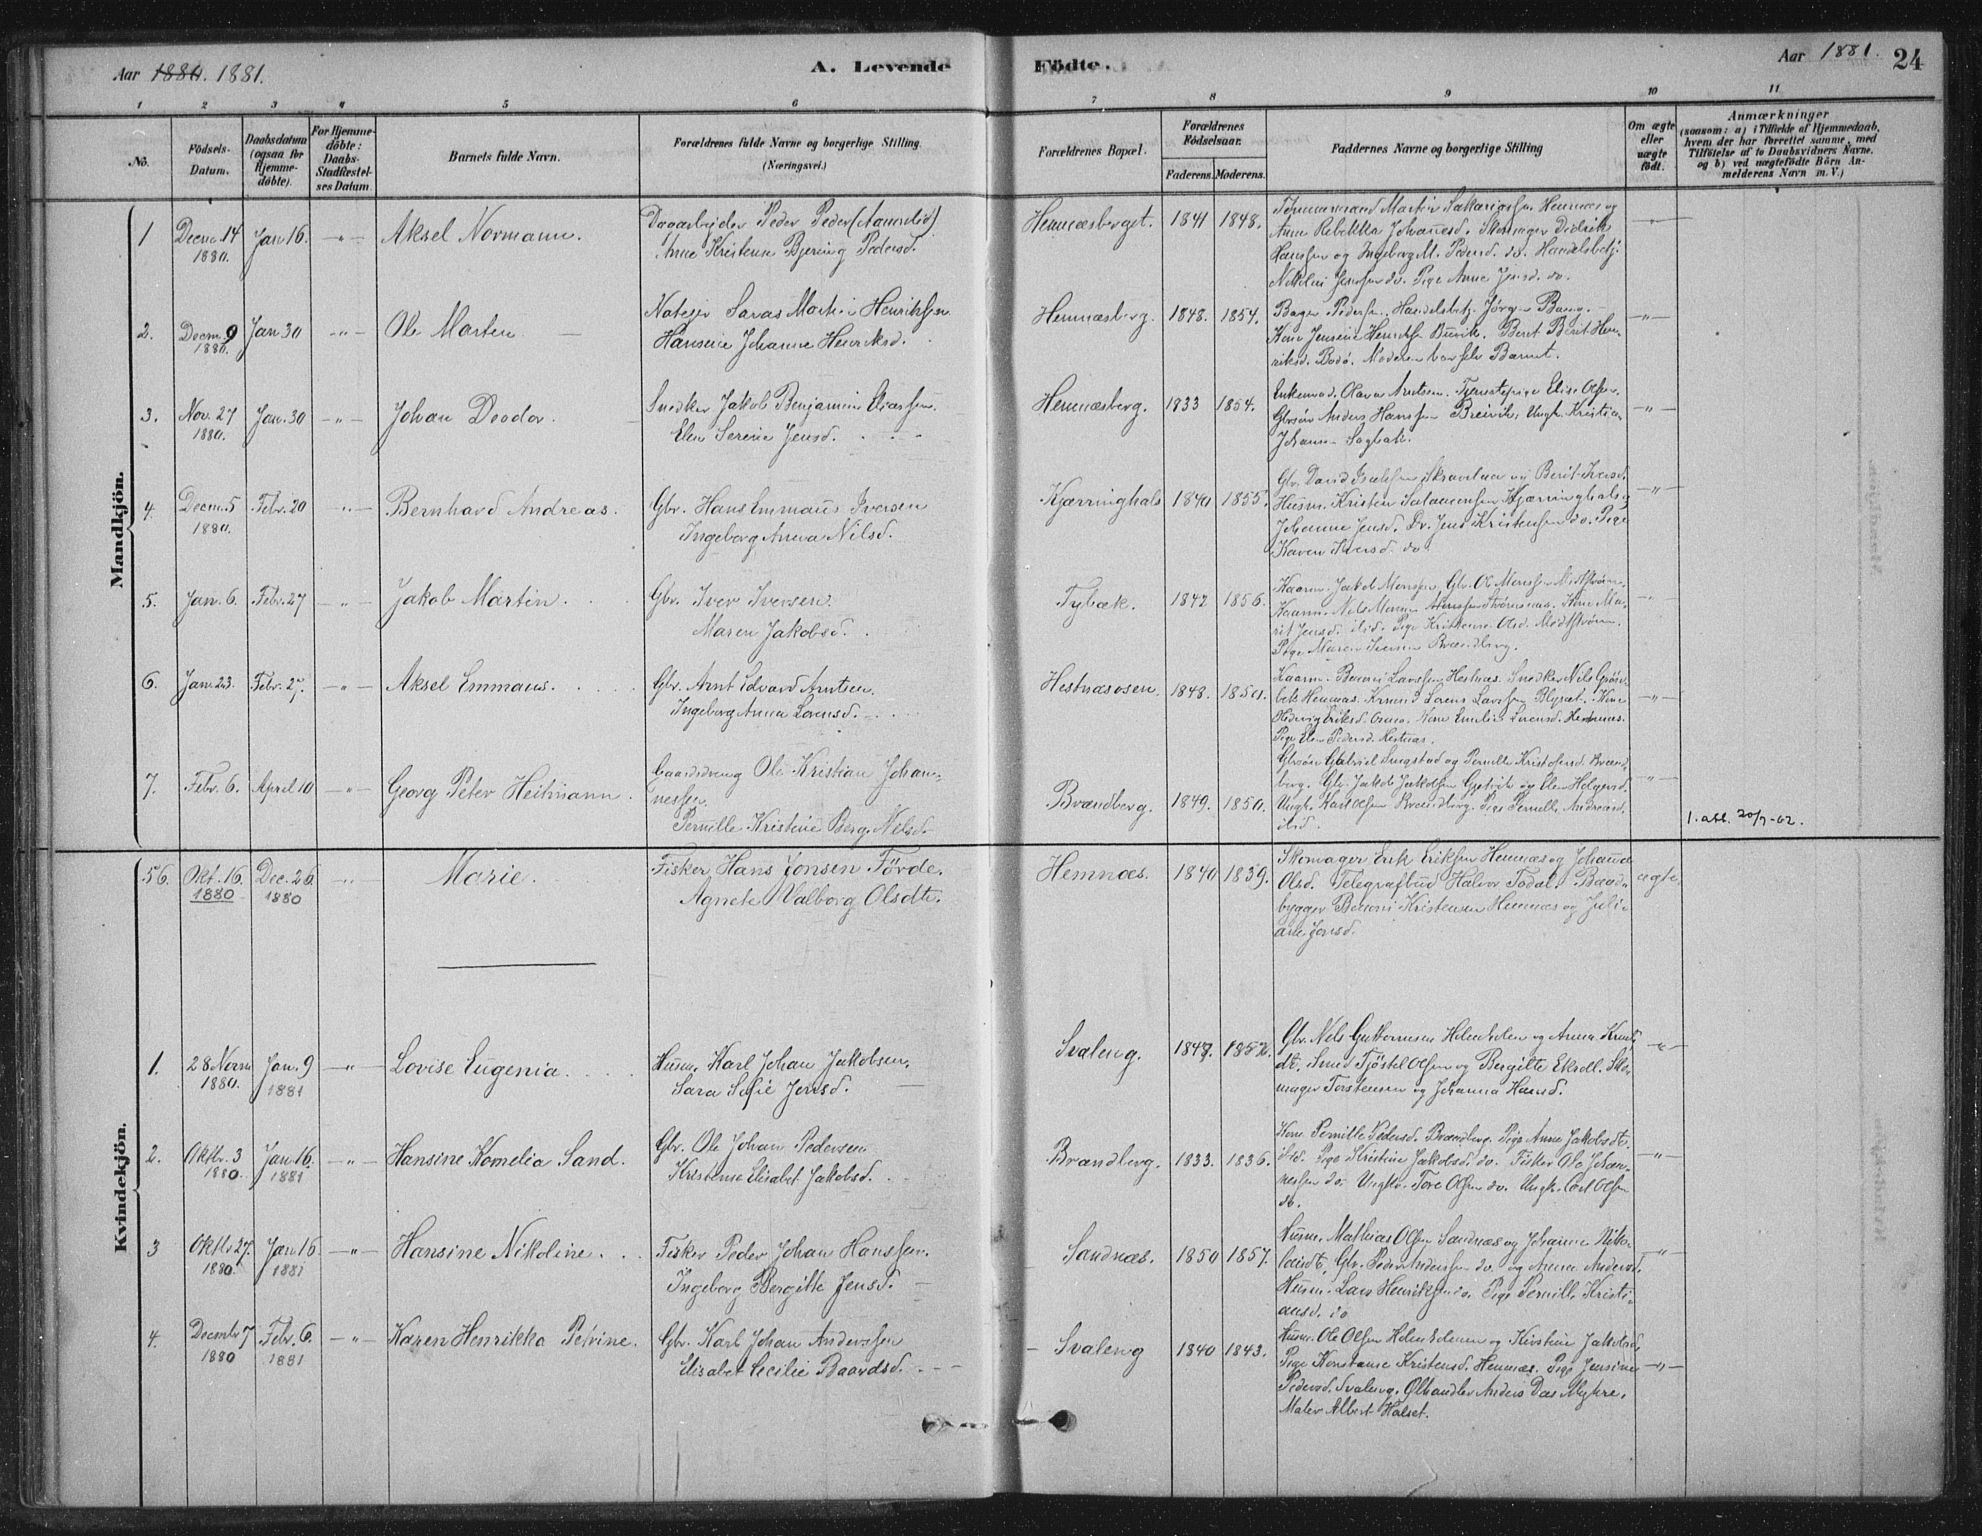 Aar 1880. 1881.
A. Levende
Födte.
Aar 1881.
24
1 2 3 4 5 6 7 8 9 10 11
No.
Födsels-
Datum.
Daabsdatum
(ogsaa for
hjemme-
döbte).
For Hjemme-
döbte:
Daabs-
Stadfestel-
ses Datum
Barnets fulde Navn.
Forældrenes fulde Navne og borgerlige Stilling.
(Næringsvei.)
Forældrenes Bopæl.
Forældrenes
Födselsaar.
Faderens. Moderens.
Faddernes Navne og borgerlige Stilling
Om ægte
eller
uægte
födt.
Anmærkninger
(saasom: a) i Tilfælde af Hjemmedaab,
hvem der har forrettet samme, med
Tilföielse af to Daabsvidners Navne.
og b) ved uægtefödte Börn An-
melderens Navn m. V.)
Mandkjön.
1 Decm. 14 1880. Jan 16. Aksel Normann.
Dagarbejder Peder Peders (Aamslid)
Anne Kristense Bjering Pedersd.
Hemnæsberget. 1841 1848.
Tømmermand Martin Sakariassen Hemnæs og
Anne Rebekka Johansd. Skomager Didrik
Hanssen og Ingeborg M. Pedersd. do. Handelsbetj.
Nikolai Jenssen do. Pige Anne Jensd. do.
2. Decm. 9 1880. Jan 30 Ole Morten
Martin Henrikssen
Hansine Johanne Henriksd.
Hemnæsberg. 1848. 1854.
Bager Pederssen, Handelsbetj. Jørgen Bang
Kone Jensine Henriksen Burik. Berit Berit Hen-
riksd. Bodø. Moderen bar selv Barnet.
3. Nov. 27 1880. Jan. 30 Johan Deodor.
Snedker Jakob Benjamin Eliassen.
Elen Serine Jensd.
Hemnæsberg. 1833 1854.
Enkemand Olava Arntsen. Tjenestepige Elise Olsen.
Gbrsøn Anders Hanssen Breivik, Ungk. Kristian
Johann Sagbakk.
4. Decm. 5 1880. Febr. 20 Bernhard Andreas.
Gbr. Hans Emmaus Iversen
Ingeborg Anna Nilsd.
Kjærringhals 1840 1855.
Husm. Kristen Salamonsen Kjærringhals og
Johanne Jensd. Dr. Jens Kristensen do. Pige
Karen Iversd. do.
5. Jan. 6. Febr. 27 Jakob Martin.
Gbr. Iver Iversen.
Maren Jakobsd.
Tybæk. 1842 1856.
Kaarm. Jakob Monssen, Gbr. Ol Monssen
rit Jensd. ibid. Pige Kristense Olsd.
Pige Maren Iversen Brændberg.
6. Jan. 23. Febr. 27. Aksel Emmaus.
Gbr. Arnt Edvard Arntsen.
Ingeborg Anna Lorensd.
Hestnæsosen. 1848. 1850.
Kaarm. Benoni Larssen Hestnæs. Snedker Nils Grøn-
bek Hemnæs. Lorens Larssen Kone
Hedvig Eriksd. Kone Emelie Lorensd. Hemnæs.
Pige Elen Pedersd. Hestnæs.
7. Febr. 6. April 10 Georg Peter Heitmann.
Gaardsdreng Ole Kristian Johan-
nessen.
Pernille Kristine Berg. Nilsd.
Brændberg. 1849. 1850.
Gbrsøn Gabriel og Pernille Kristofersd. Brænd-
berg. Gbr. Jakob Jakobsen og Elen Holgersd.
Ungk. Karl Olsen Brændberg. Pige Pernille Andreasd.
ibid.
1. att. 20/9-62.
Kvindekjön.
56. Okt. 16. 1880 Dec. 26 1880 Marie.
Fisker Hans Jonsen Förde.
Agnete Valborg Olsdt.
Hemnæs. 1840 1839.
Skomager Erik Eriksen Hemnæs og Johanna
Olsd. Telegrafbud Halvor Todal. Baad-
bygger Benoni Kristensen Hemnæs og Juli-
ane Jonsd.
ægte
1. 28 Novm 1880. Jan. 9 1881 Lovise Eugenia.
Husm. Karl Johan Jakobsen.
Sara Sofie Jensd.
Svaleng.
Gbr. Nils Guttormsen og Anna Knuts-
dt. Smed Tjöstel Olsen og Bergitte Eksdl. Sko-
mager Torstensen og Johanna Hansd.
2. Oktbr. 3 1880. Jan 16. 1881 Hansine Kornelia Sand.
Gbr. Ole Johan Pedersen
Kristense Elisabet Jakobsd.
Brændberg. 1833. 1836.
Kone Pernille Pedersd. Brændberg. Pige Anne Jakobsdt.
ibid. Pige Kristine Jakobsd. do. Fisker Ole Johan-
nessen do. Ungkr. Tore Olsen do. Ungk. Carl Olsen
do.
3 Oktbr 27. 1880. Jan 16 1881 Hansine Nikoline.
Fisker Peder Johan Hanssen.
Ingeborg Bergitte Jensd.
Sandnæs. 1850 1857.
Husm. Mathias Olsen Sandnæs og Johanne Niko-
laisdt. Gbr. Peder Anderssen do. og Anna Andersd.
Husm. Lars Henriksen do. Pige Pernille Kristi-
ansd. do
4. Decmbr 7 1880 Febr. 6. 1881 Karen Henrikka Petrine.
Gbr. Karl Johan Anderssen
Elisabet Cecilie Baardsd.
Svaleng 1840 1843.
Husm. Ole Olsen og Kirstine Jakobsd.
Pige Konstanse Kristensd. Hemnæs. Pige Jensine
Pedersd. Svaleng. Ølhandler Anders Das Myhre.
Maler Albert Halset.